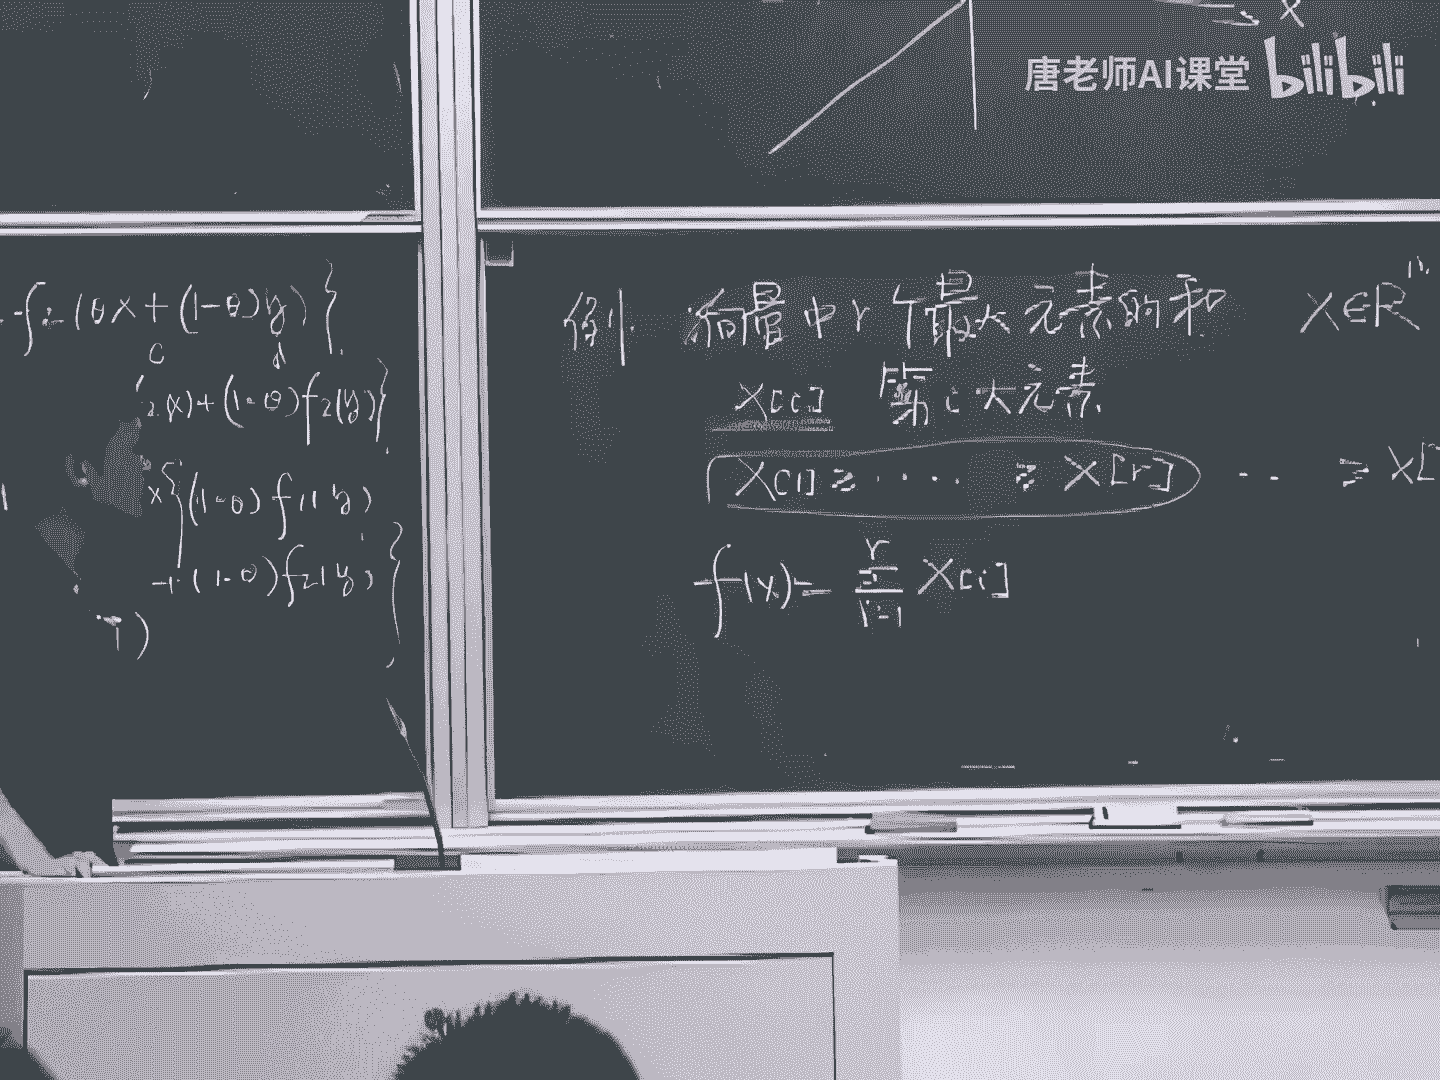 X
唐老师AI课堂 bilibili
f2(θx+(1-θ)y)}
c d
2(x)+(1-θ)f2(y)}
x{(1-θ)f1(y)
+(1-θ)f2(y)}
)
例: 向量中r个最大元素的和 X∈Rⁿ
X[i] 第i大元素
X[1] ≥ ···· ≥ X[r] ·· ≥ X[
f(x)= ∑_{i=1}^{r} X[i]